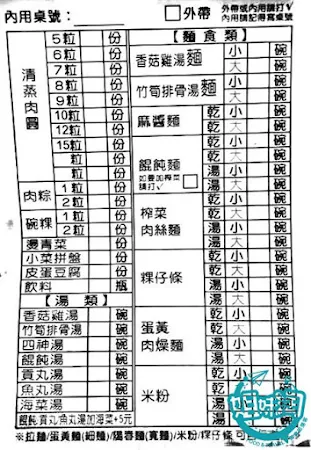 內用桌號： □外帶 外帶或內用請打√
內用請記得寫桌號
清蒸肉圓
5粒 份
6粒 份
7粒 份
8粒 份
9粒 份
10粒 份
12粒 份
15粒 份
粒 份
粒 份
肉粽 1粒 份
2粒 份
碗粿 1粒 份
2粒 份
燙青菜 份
小菜拼盤 份
皮蛋豆腐 份
飲料 瓶
【湯 類】
香菇雞湯 碗
竹筍排骨湯 碗
四神湯 碗
餛飩湯 碗
貢丸湯 碗
魚丸湯 碗
海菜湯 碗
餛飩.貢丸.魚丸湯加海菜+5元
【麵 食 類】
香菇雞湯麵 小 碗
大 碗
竹筍排骨湯麵 小 碗
大 碗
麻醬麵 乾 小 碗
乾 大 碗
餛飩麵 乾 小 碗
乾 大 碗
如要加榨菜
請打√ □
湯 小 碗
湯 大 碗
榨菜肉絲麵 乾 小 碗
乾 大 碗
湯 小 碗
湯 大 碗
粿仔條 乾 小 碗
乾 大 碗
湯 小 碗
湯 大 碗
蛋黃肉燥麵 乾 小 碗
乾 大 碗
湯 小 碗
湯 大
米粉 乾 小
乾
湯
湯
※拉麵/蛋黃麵(細麵)/陽春麵(寬麵)/米粉/粿仔條